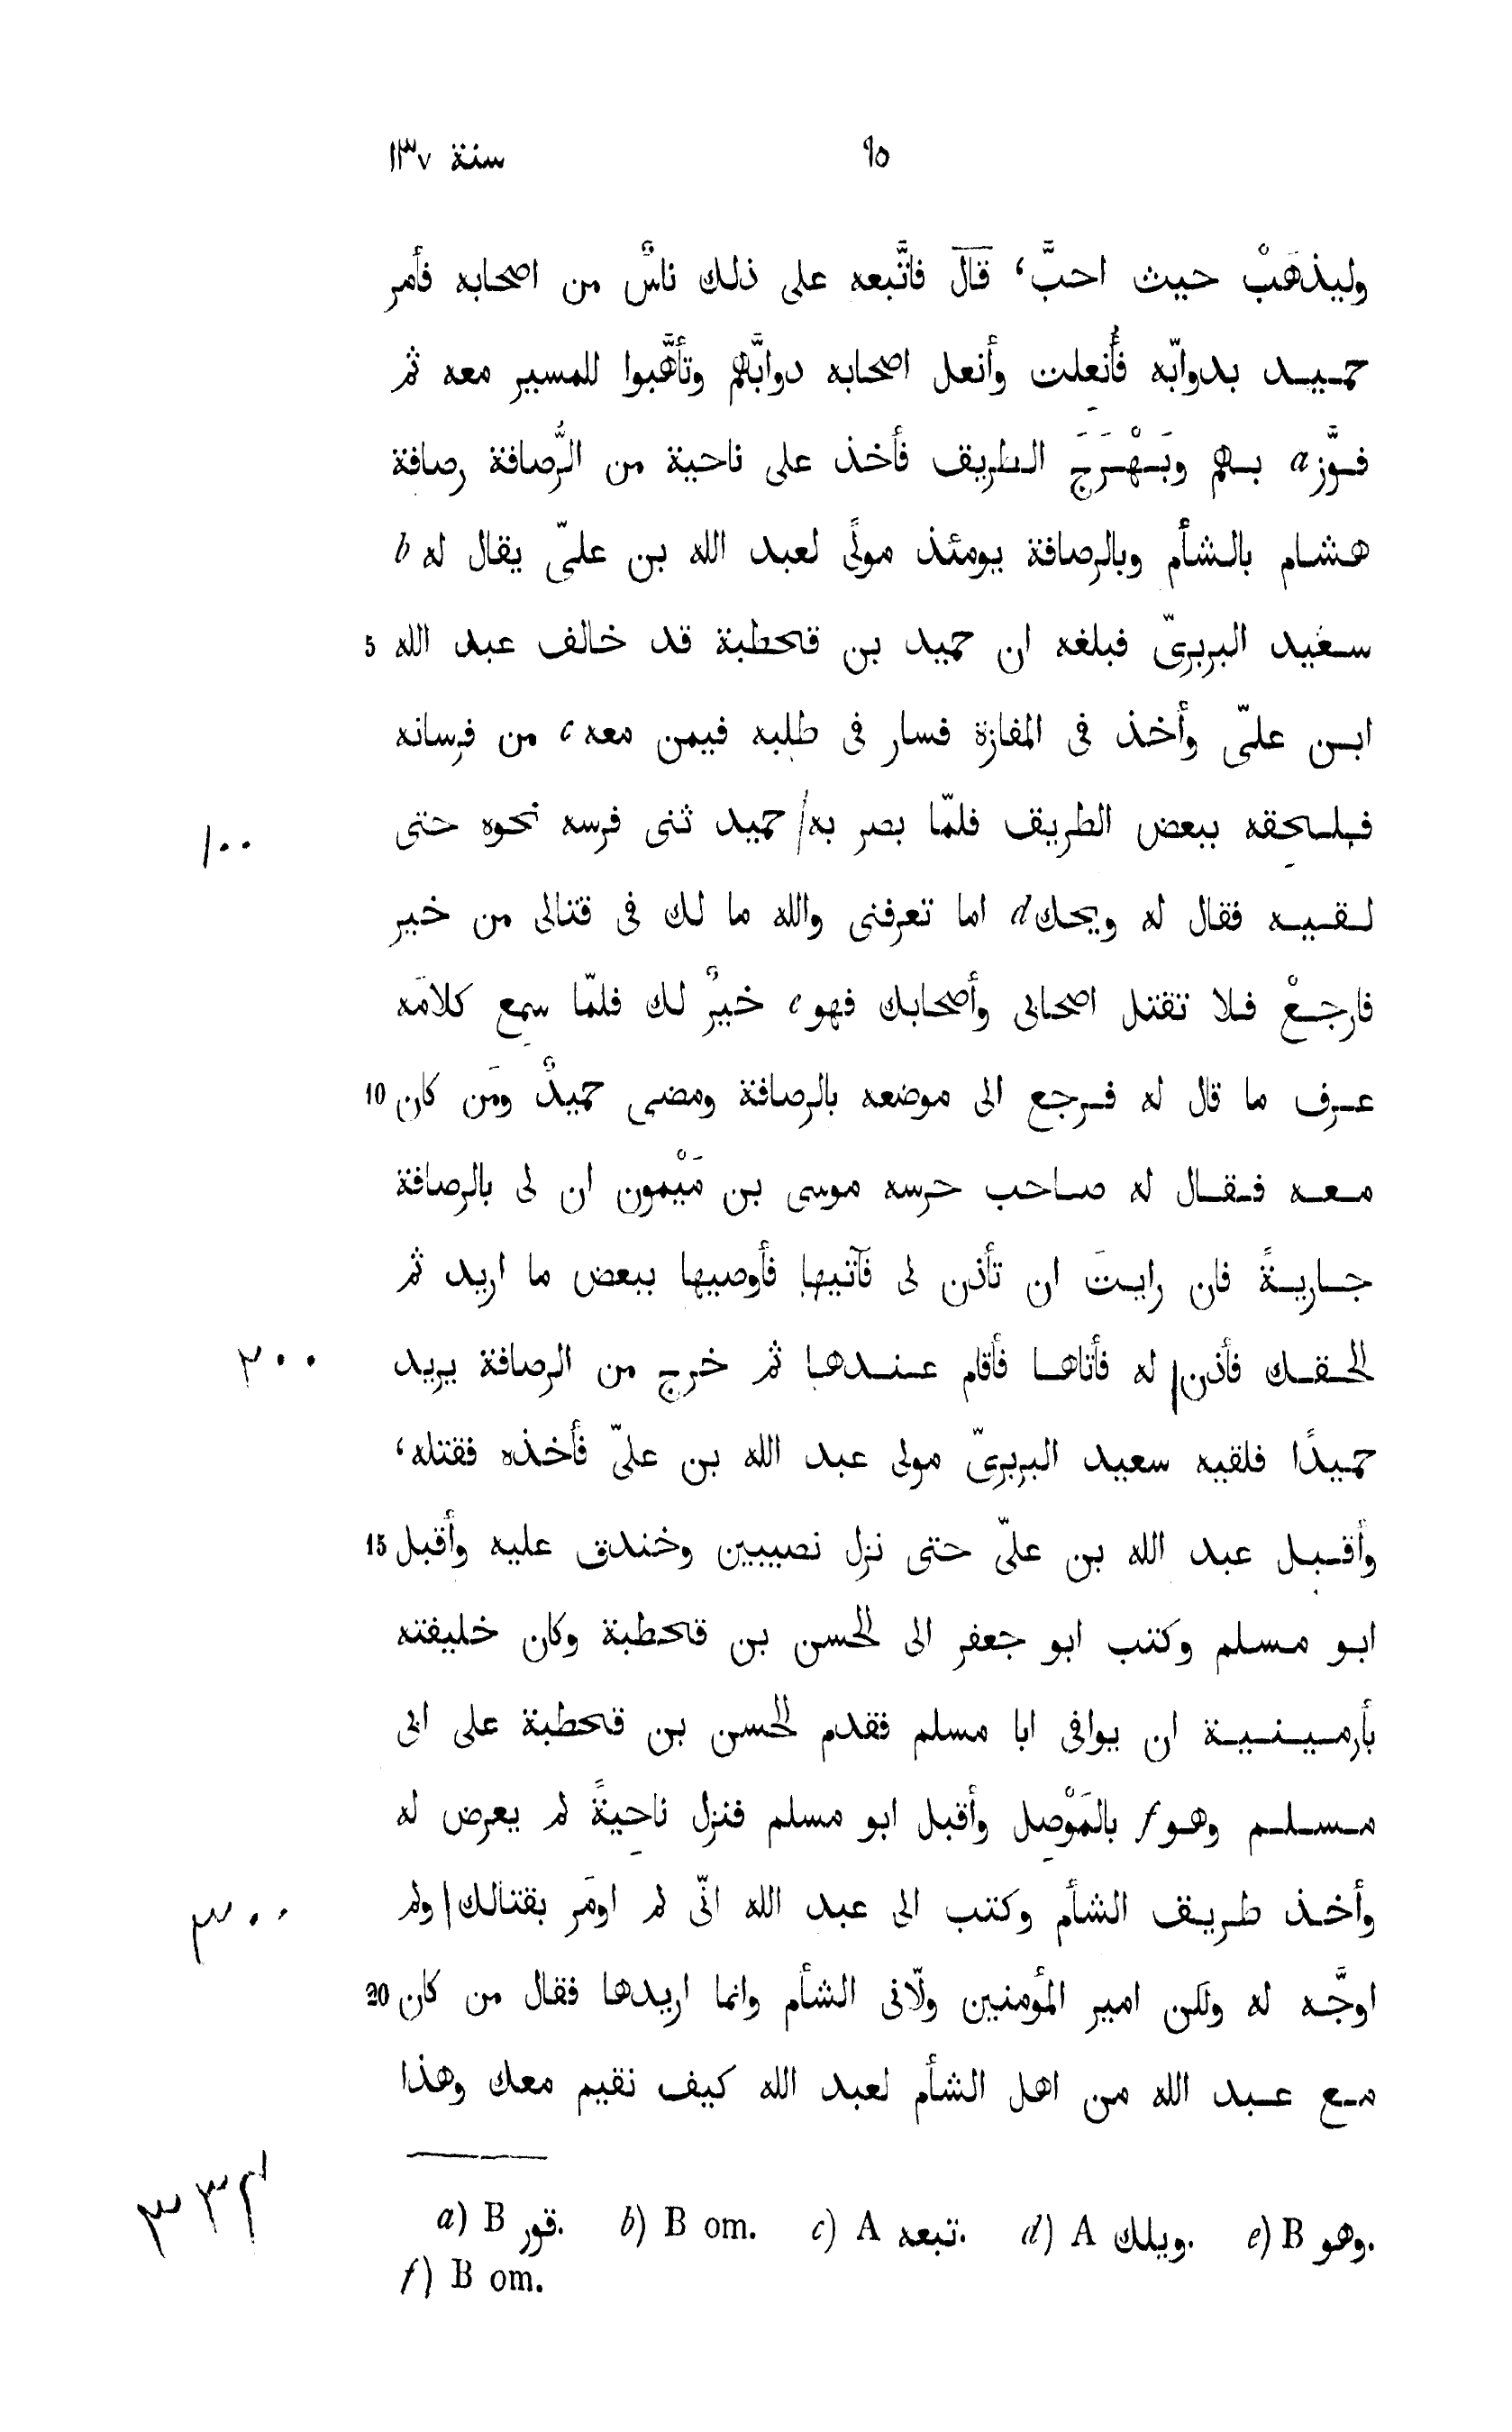 سنة ١٣٧ ٩٥
وليذهَبْ حيث احبَّ، قال فاتَّبعه على ذلك ناسٌ من اصحابه فأمر
حميد بدوابّه فأُنعِلت وأنعل اصحابه دوابَّهم وتأهَّبوا للمسير معه ثم
فوَّز a بهم وبَهْرَجَ الطريق فأخذ على ناحية من الرُّصافة رصافة
هشام بالشأم وبالرصافة يومئذ مولًى لعبد الله بن علىّ يقال له b
سعيد البربرىّ فبلغه ان حميد بن قحطبة قد خالف عبد الله 5
ابن علىّ وأخذ فى المفازة فسار فى طلبه فيمن معه c من فرسانه
فلحقه ببعض الطريق فلمّا بصر به/ حميد ثنى فرسه نحوه حتى ١٠٠
لقيه فقال له ويحك d اما تعرفنى والله ما لك فى قتالى من خير
فارجِعْ فلا تقتل اصحابى وأصحابك فهو e خيرٌ لك فلمّا سمع كلامَه
عرف ما قال له فرجع الى موضعه بالرصافة ومضى حميدٌ ومَن كان 10
معه فقال له صاحب حرسه موسى بن مَيْمون ان لى بالرصافة
جاريةً فان رايتَ ان تأذن لى فآتيها فأوصيها ببعض ما اريد ثم
الحقك فأذن/ له فأتاها فأقام عندها ثم خرج من الرصافة يريد ٢٠٠
حميدًا فلقيه سعيد البربرىّ مولى عبد الله بن علىّ فأخذه فقتله،
وأقبل عبد الله بن علىّ حتى نزل نصيبين وخندق عليه وأقبل 15
ابو مسلم وكتب ابو جعفر الى الحسن بن قحطبة وكان خليفته
بأرمينية ان يوافى ابا مسلم فقدم الحسن بن قحطبة على ابى
مسلم وهو f بالمَوْصِل وأقبل ابو مسلم فنزل ناحيةً لم يعرض له
وأخذ طريق الشأم وكتب الى عبد الله انّى لم اومَر بقتالك/ ولم ٣٠٠
اوجَّه له ولكن امير المؤمنين ولّانى الشأم وانما اريدها فقال من كان 20
مع عبد الله من اهل الشأم لعبد الله كيف نقيم معك وهذا
٣٣٤
a) B قور. b) B om. c) A تبعه. d) A ويلك. e) B وهو.
f) B om.